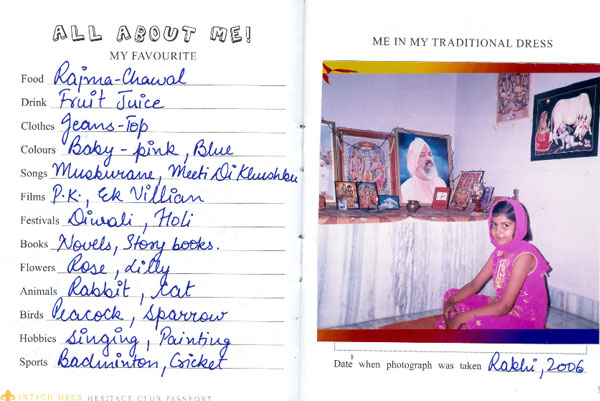 ALL ABOUT ME!
MY FAVOURITE
Food Rajma-Chawal
Drink Fruit Juice
Clothes Jeans-Top
Colours Baby-pink, Blue
Songs Muskurane, Meeti Di Khushbu
Films P.K., Ek Villian
Festivals Diwali, Holi
Books Novels, Story books.
Flowers Rose, Lilly
Animals Rabbit, Cat
Birds Peacock, Sparrow
Hobbies Singing, Painting
Sports Badminton, Cricket
INTACH HECS HERITAGE CLUB PASSPORT
ME IN MY TRADITIONAL DRESS
Date when photograph was taken Rakhi, 2006